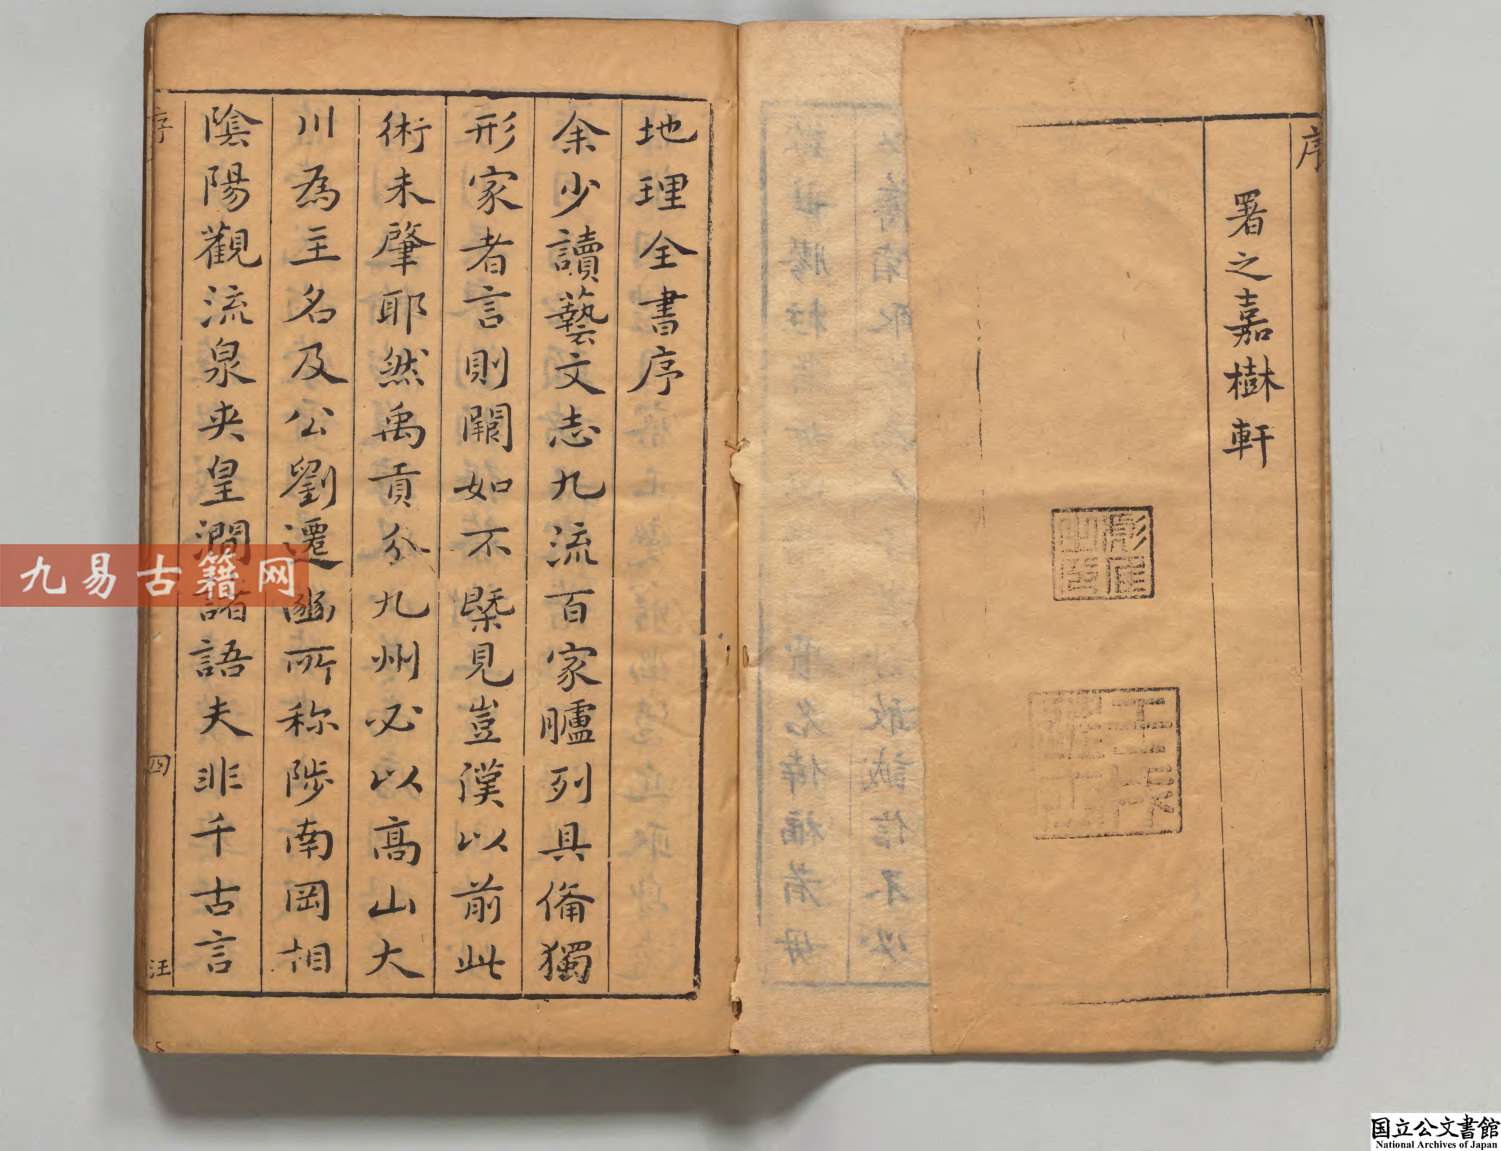 序
署之嘉樹軒
地理全書序
余少讀藝文志九流百家臚列具俻獨
形家者言則闕如不槩見豈漢以前此
術未肇耶然禹貢分九州必以高山大
川為主名及公劉遷豳所称陟南岡相
陰陽觀流泉夾皇澗諸語夫非千古言
序
四
汪
九易古籍网
国立公文書館
National Archives of Japan